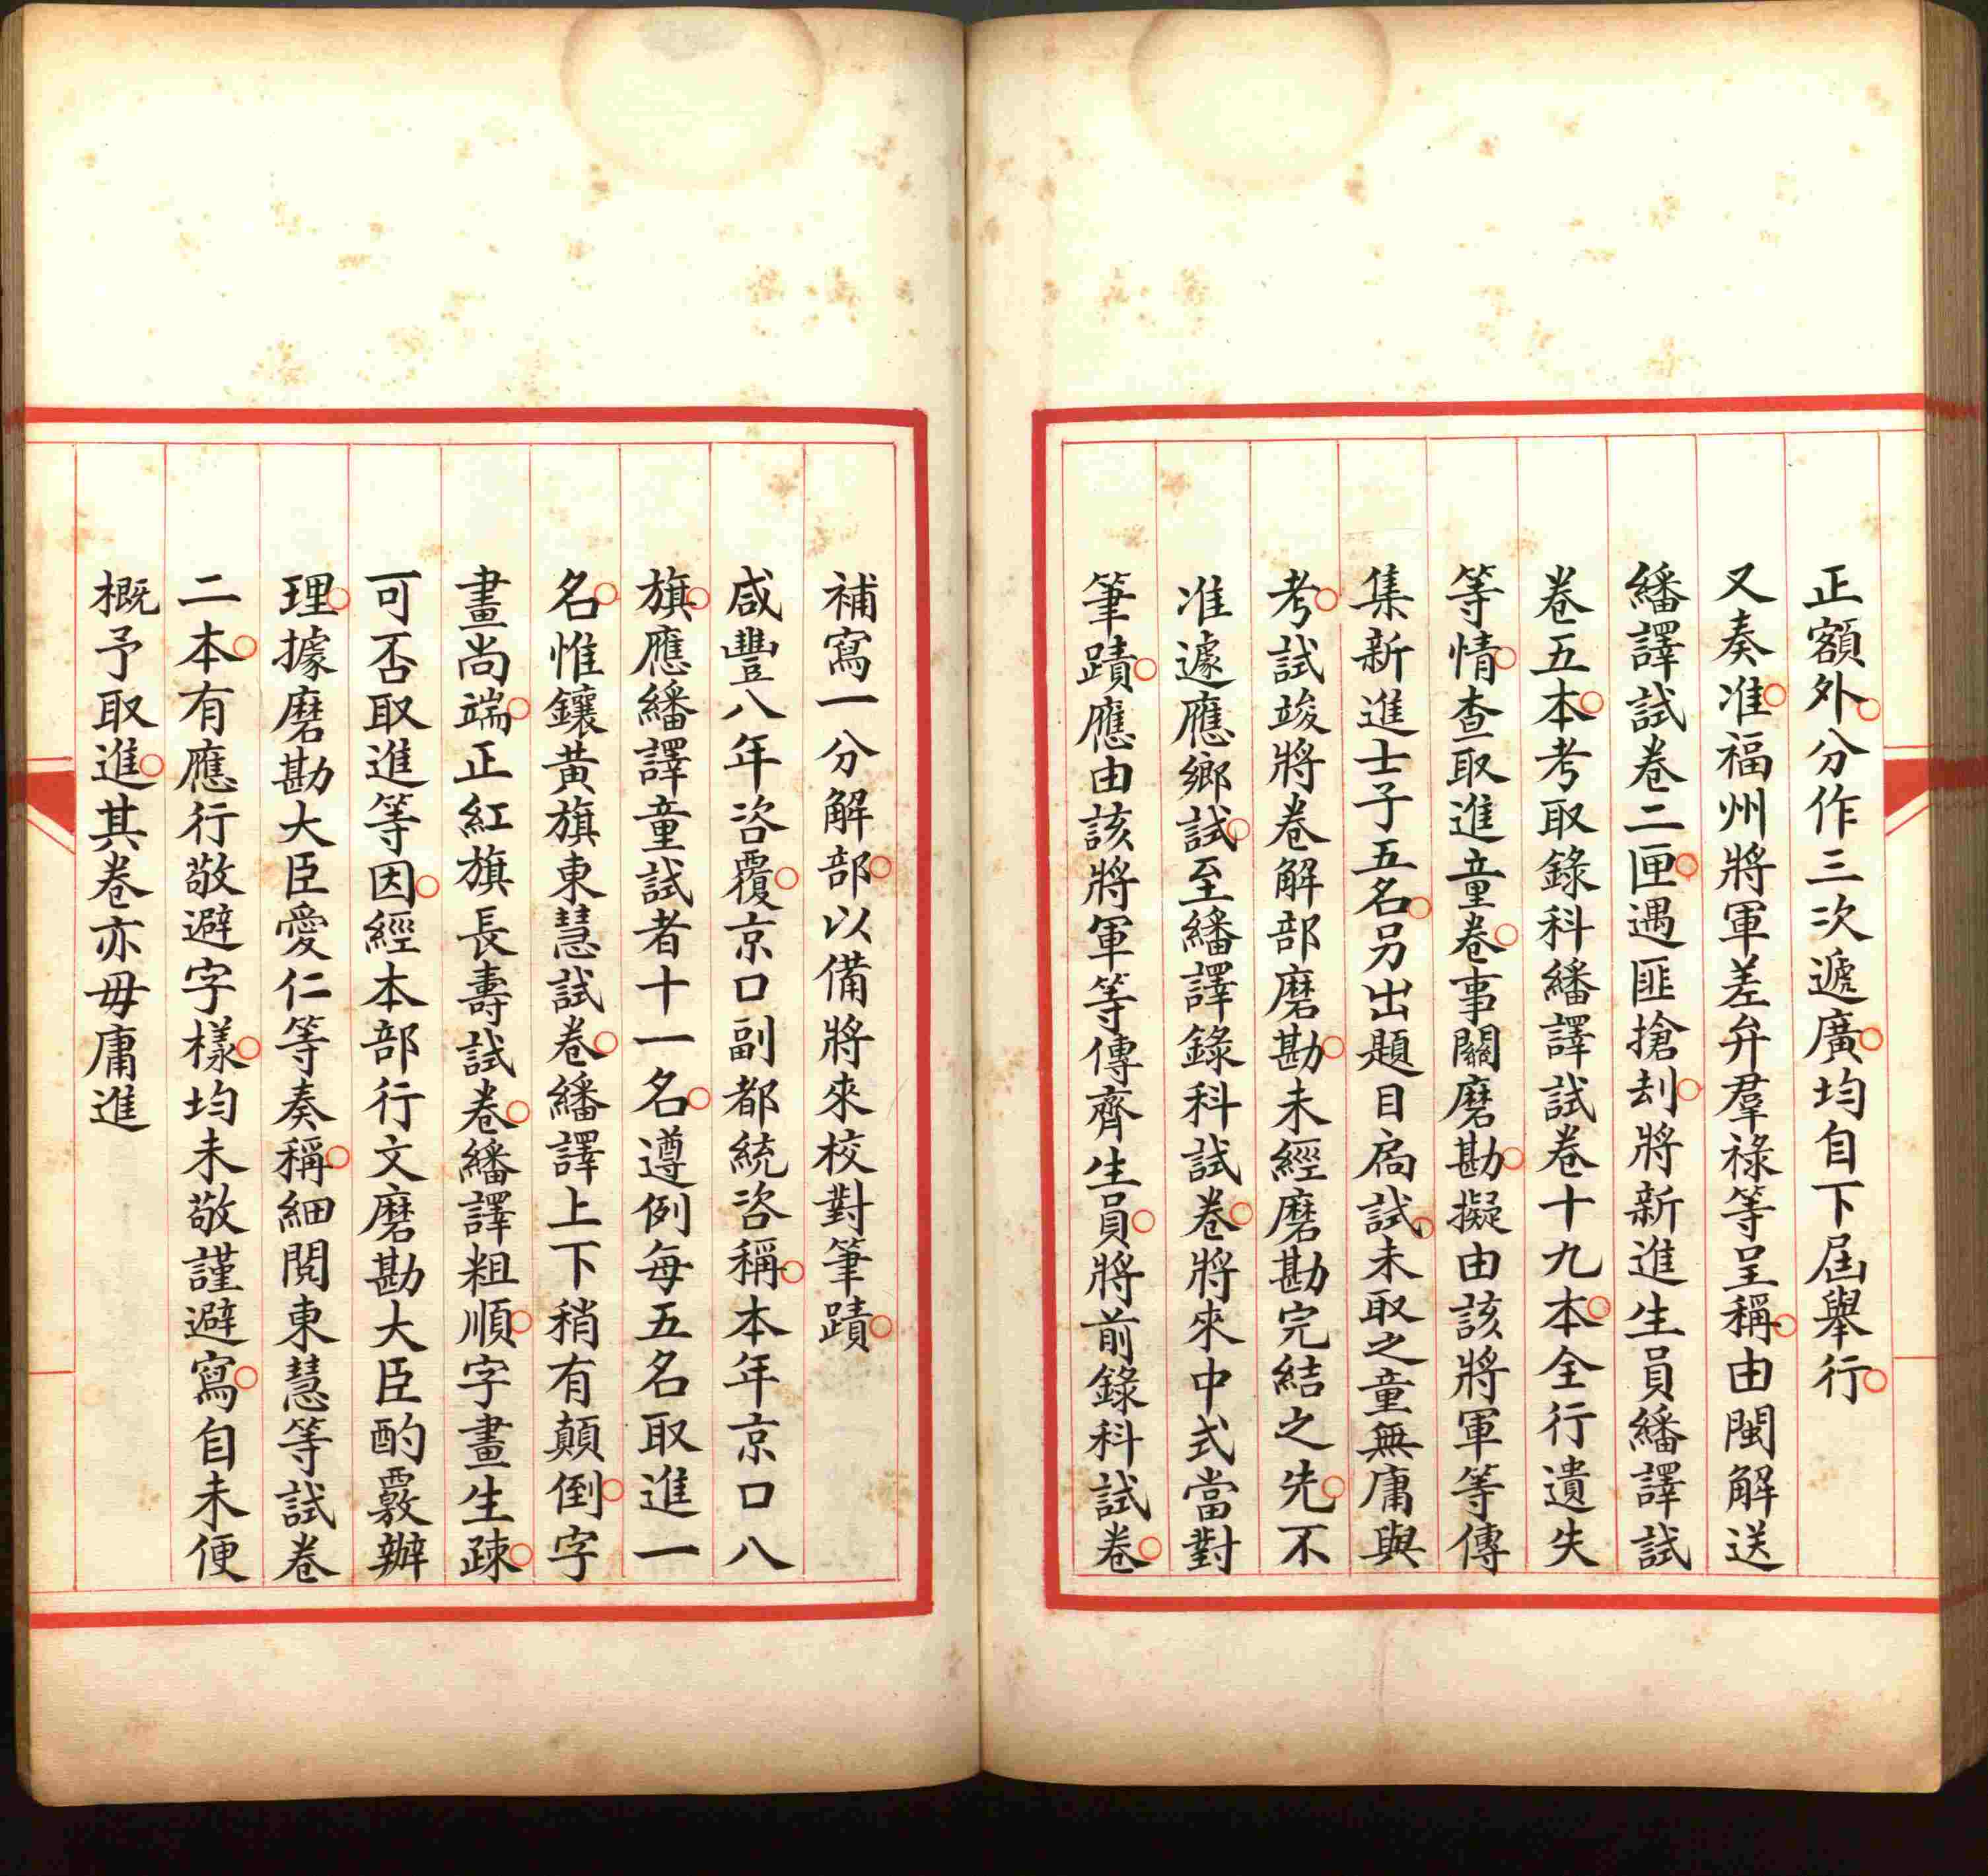 正額外分作三次遞廣均自下屆舉行
又奏准福州將軍差弁羣祿等呈稱由閩解送
繙譯試卷二匣遇匪搶刦將新進生員繙譯試
卷五本考取錄科繙譯試卷十九本全行遺失
等情查取進童卷事關磨勘擬由該將軍等傳
集新進士子五名另出題目扃試未取之童無庸與
考試竣將卷解部磨勘未經磨勘完結之先不
准遽應鄉試至繙譯錄科試卷將來中式當對
筆蹟應由該將軍等傳齊生員將前錄科試卷
補寫一分解部以備將來校對筆蹟
咸豐八年咨覆京口副都統咨稱本年京口八
旗應繙譯童試者十一名遵例每五名取進一
名惟鑲黃旗東慧試卷繙譯上下稍有顛倒字
畫尚端正紅旗長壽試卷繙譯粗順字畫生疎
可否取進等因經本部行文磨勘大臣酌覈辦
理據磨勘大臣愛仁等奏稱細閱東慧等試卷
二本有應行敬避字樣均未敬謹避寫自未便
概予取進其卷亦毋庸進